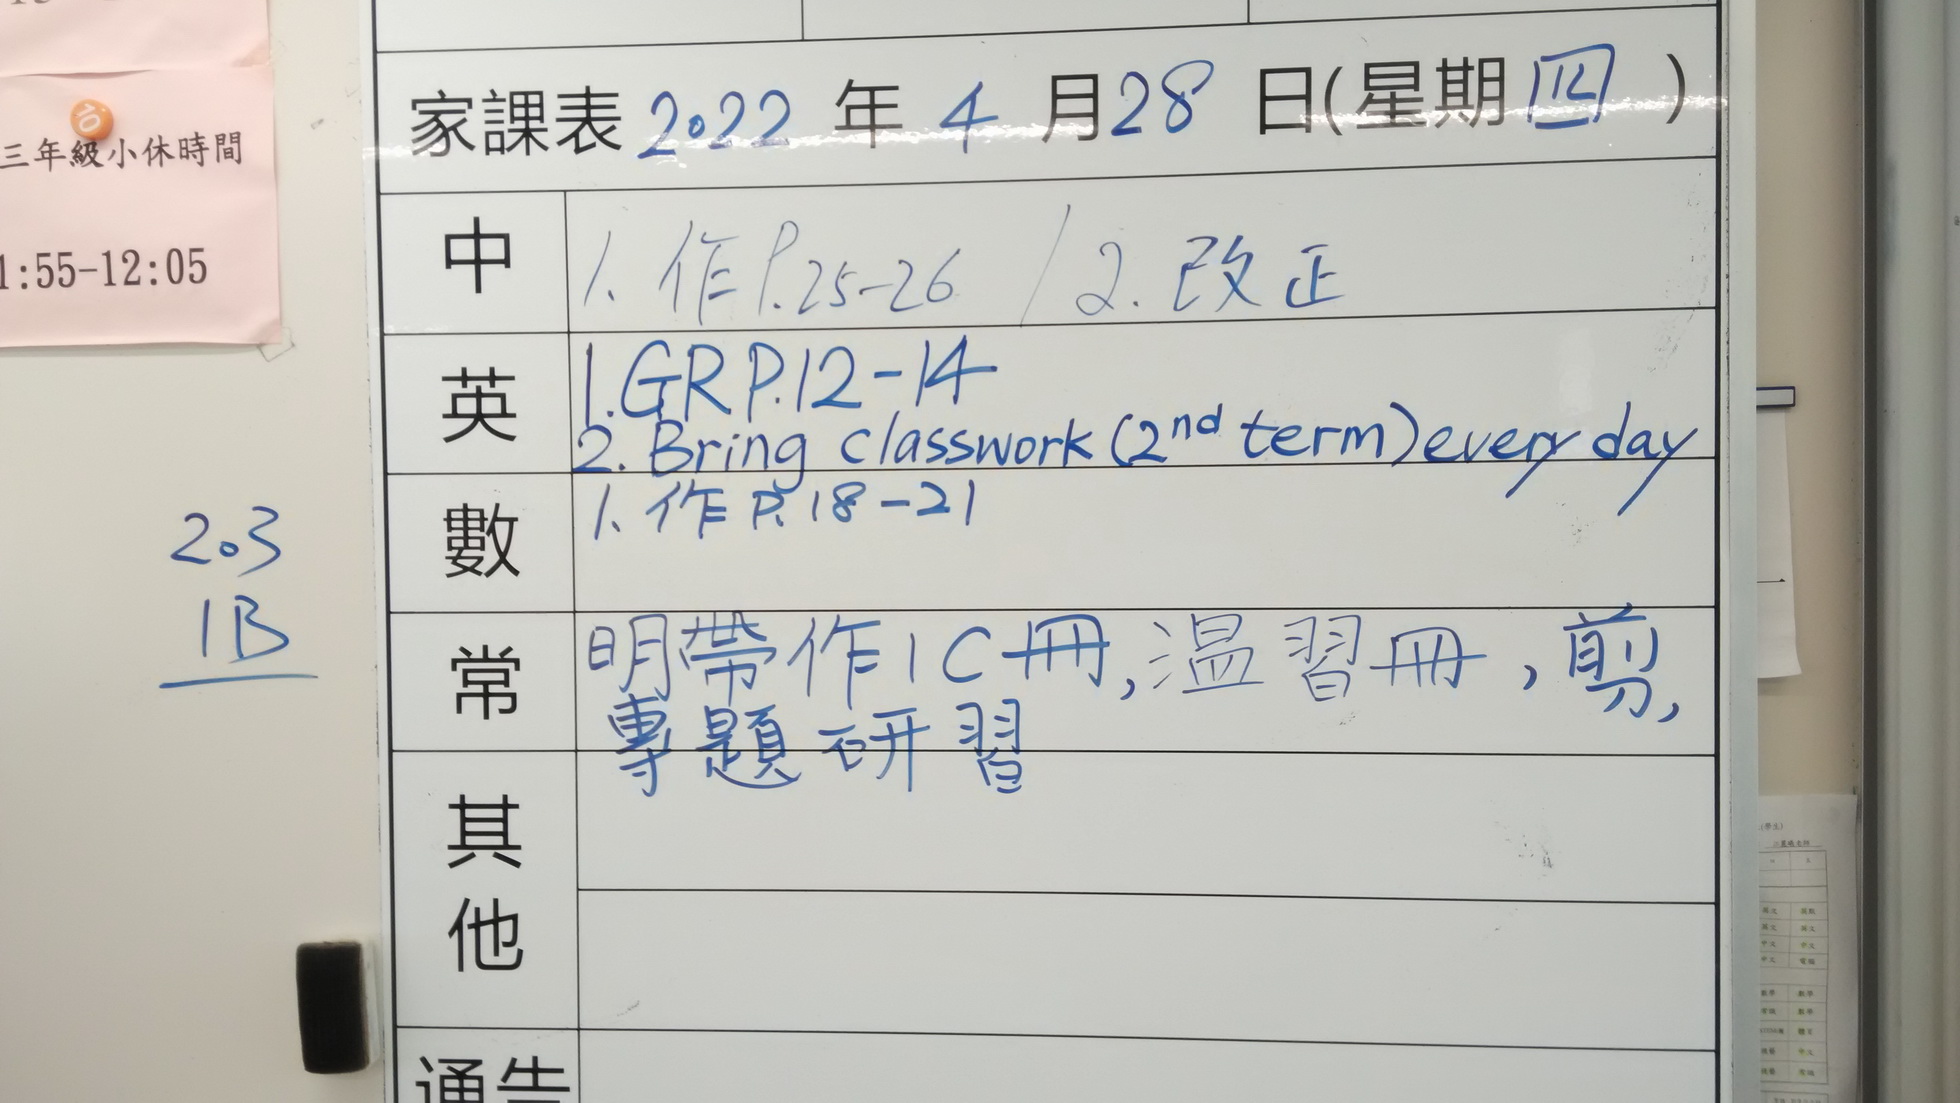 10
三年級小休時間
1:55-12:05
家課表 2022 年 4 月 28 日(星期 四 )
中
1. 作P.25-26 / 2. 改正
英
1. GR P.12-14
2. Bring classwork (2nd term) every day
數
1. 作 P.18-21
203
1B
常
明帶作1C冊, 溫習冊, 剪,
專題研習
其他
通告